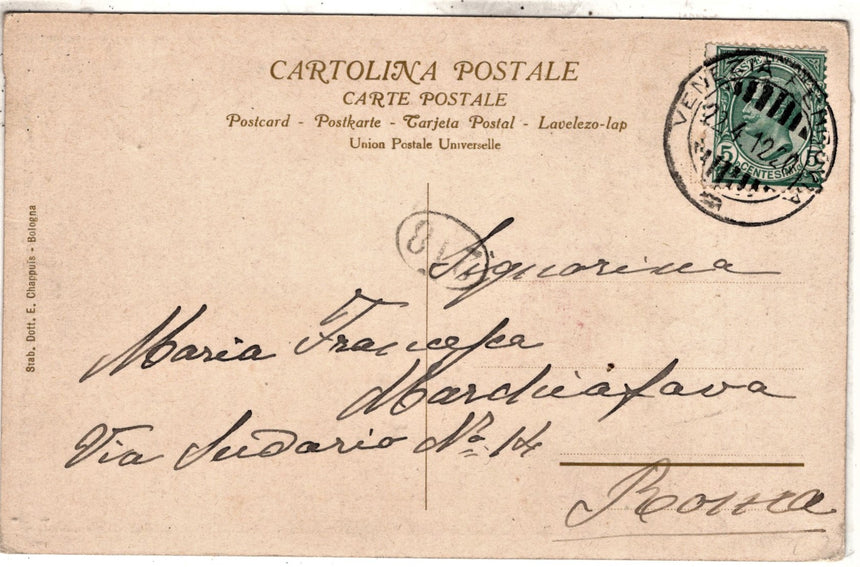 CARTOLINA POSTALE
CARTE POSTALE
Postcard - Postkarte - Tarjeta Postal - Lavelezo-lap
Union Postale Universelle
VENEZIA
12
5
CENTESIMI
Stab. Dott. E. Chappuis - Bologna
Signorina
Maria Francesca
Marchiafava
Via Sudario No. 14
Roma